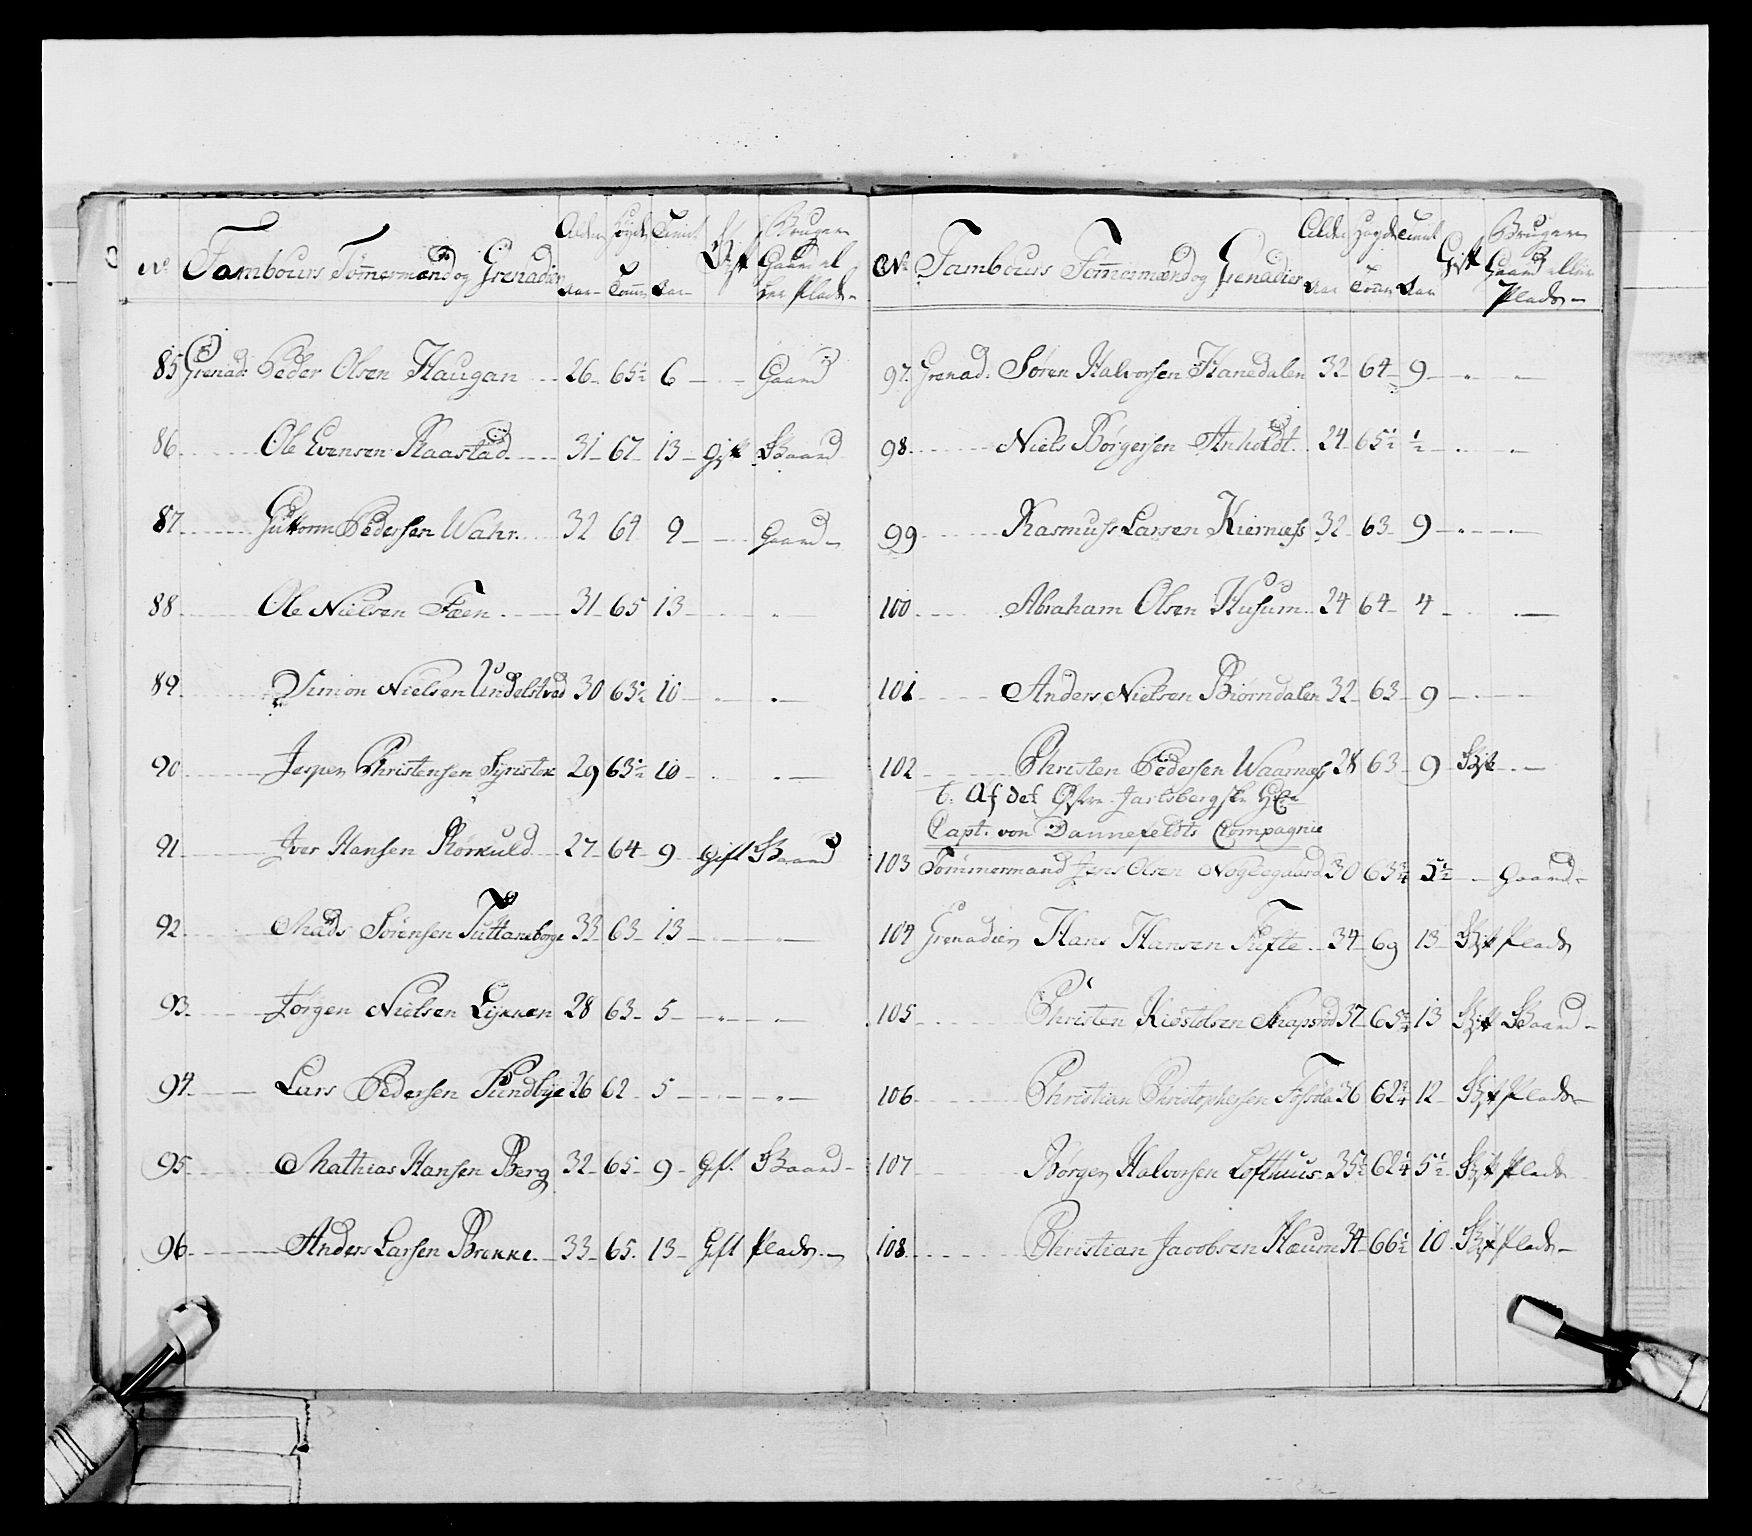 No Tambours Tømmermænd og Grenadier Alder Aar Høyde Tomer Tienist Aar Gift Bruger Gaard el ler Plads
85 Grenad: Peder Olsen Haugan 26 65½ 6 Gaard
86 Ole Evensen Raastad 31 67 13 Gift Gaard
87 Guttorm Pedersen Wahr 32 64 9 Gaard
88 Ole Nielsen Foen 31 65 13
89 Simon Nielsen Undelstvad 30 63½ 10
90 Jesper Christensen 29 63½ 10
91 Iver Hansen Rørkuld 27 64 9 Gift Gaard
92 Mads Sørensen Tuttaneborge 33 63 13
93 Jørgen Nielsen Lykken 28 63 5
94 Lars Pedersen Sundbye 26 62 5
95 Mathias Hansen Berg 32 65 9 Gift Gaard
96 Anders Larsen Brekke 33 65 13 Gift Plads
No Tambours Tømmermænd og Grenadier Alder Aar Høyde Tomer Tienist Aar Gift Bruger Gaard eller Plads
97. Grenad. Søren Halvorsen Hanedalen 32 64 9
98 Niels Børgersen Anholdt 24 65½ ½
99 Rasmuss Larsen Kiernæss 32 63 9
100 Abraham Olsen Husum 24 64 4
101 Anders Nielsen Biørndalen 32 63 9
102 Christen Pedersen Waarnæss 28 63 9 Gift
6. Af det Østre Jarlsbergske
Capt. von Dannefeldts Compagnie
103 Tømmermand Jens Olsen Nøglegaard 30 63¾ 5½ Gaard
104 Grenadier Hans Hansen Tufte 34 69 13 Gift Plads
105 Christen Kiøstolsen Knapsrød 37 65¾ 13 Gift Gaard
106 Christian Christophersen 36 62¾ 12 Gift Plads
107 Børger Halvorsen Lofthuus 35½ 62¼ 5½ Gift Plads
108 Christian Jacobsen Haum 34 66½ 10 Gift Plads